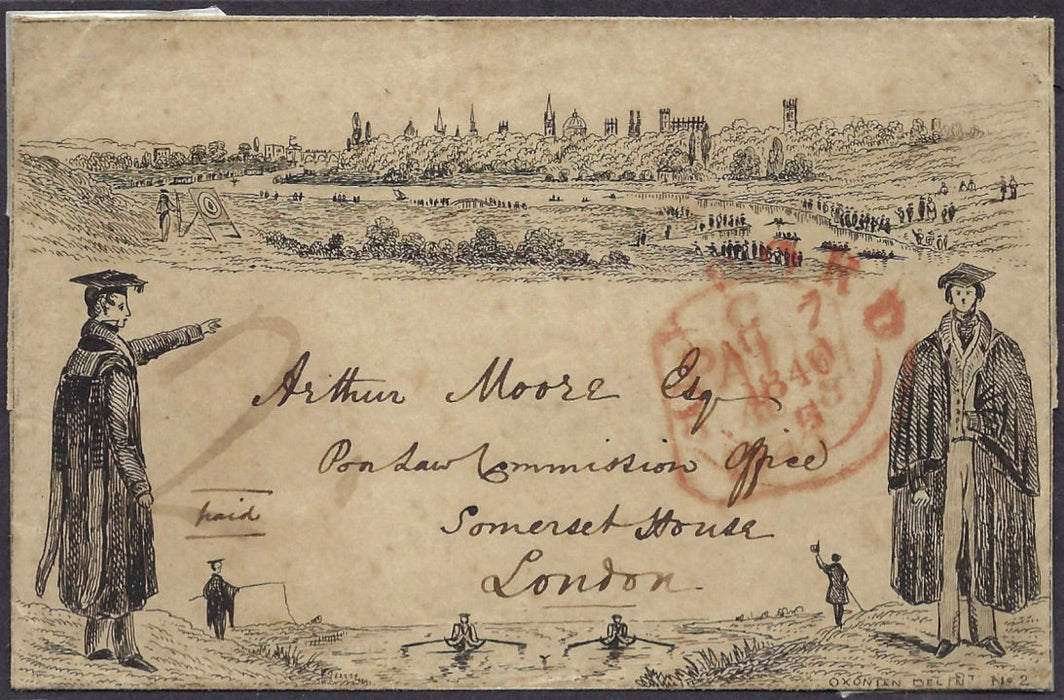 Arthur Moore Esq
Poor Law Commission Office
Somerset House
London
paid
2
PAID
7
1840
OXONIAN DELINT No 2